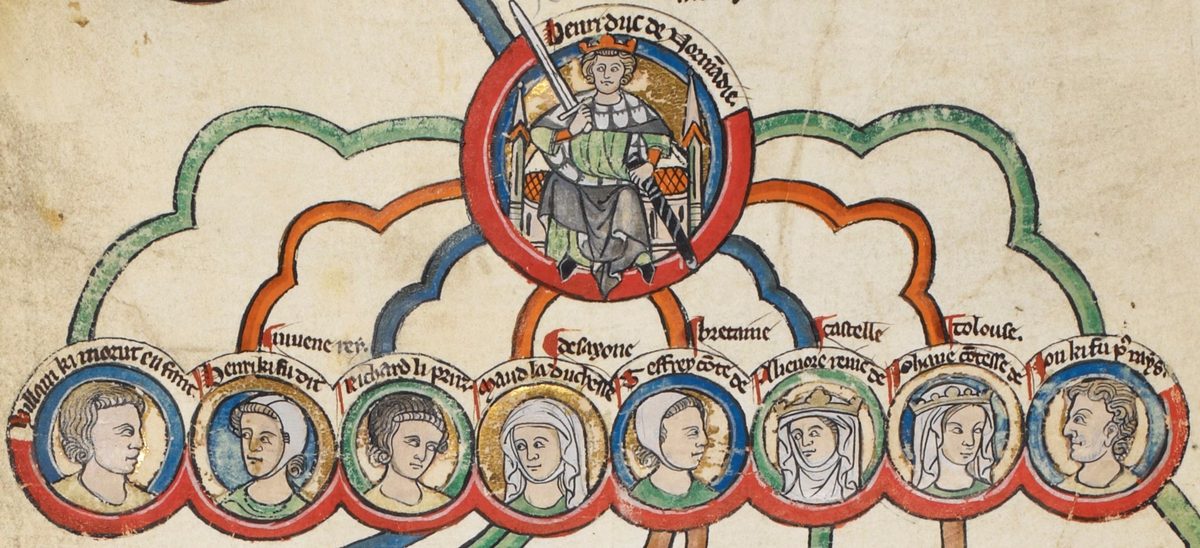 Henri duc de Normãdie.
Willam ki morut enfant
Henri ki fu dit
iuvene rey.
Richard li
Maud la duchesse
de saxone
Geffrey cõte de
bretaine
Alienore reine de
castelle
Iohane cõtesse de
tolouse.
Ion ki fu